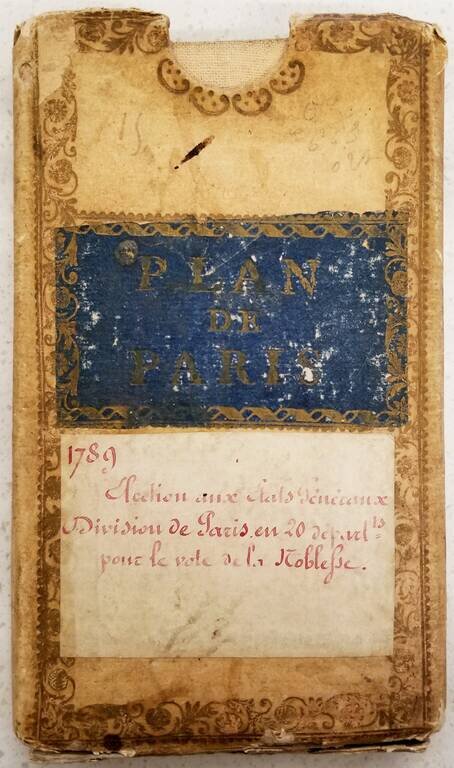 15
PLAN
DE
PARIS
1789
Election aux Etats Généraux
Division de Paris en 20 départ.ts
pour le vote de la Noblesse.